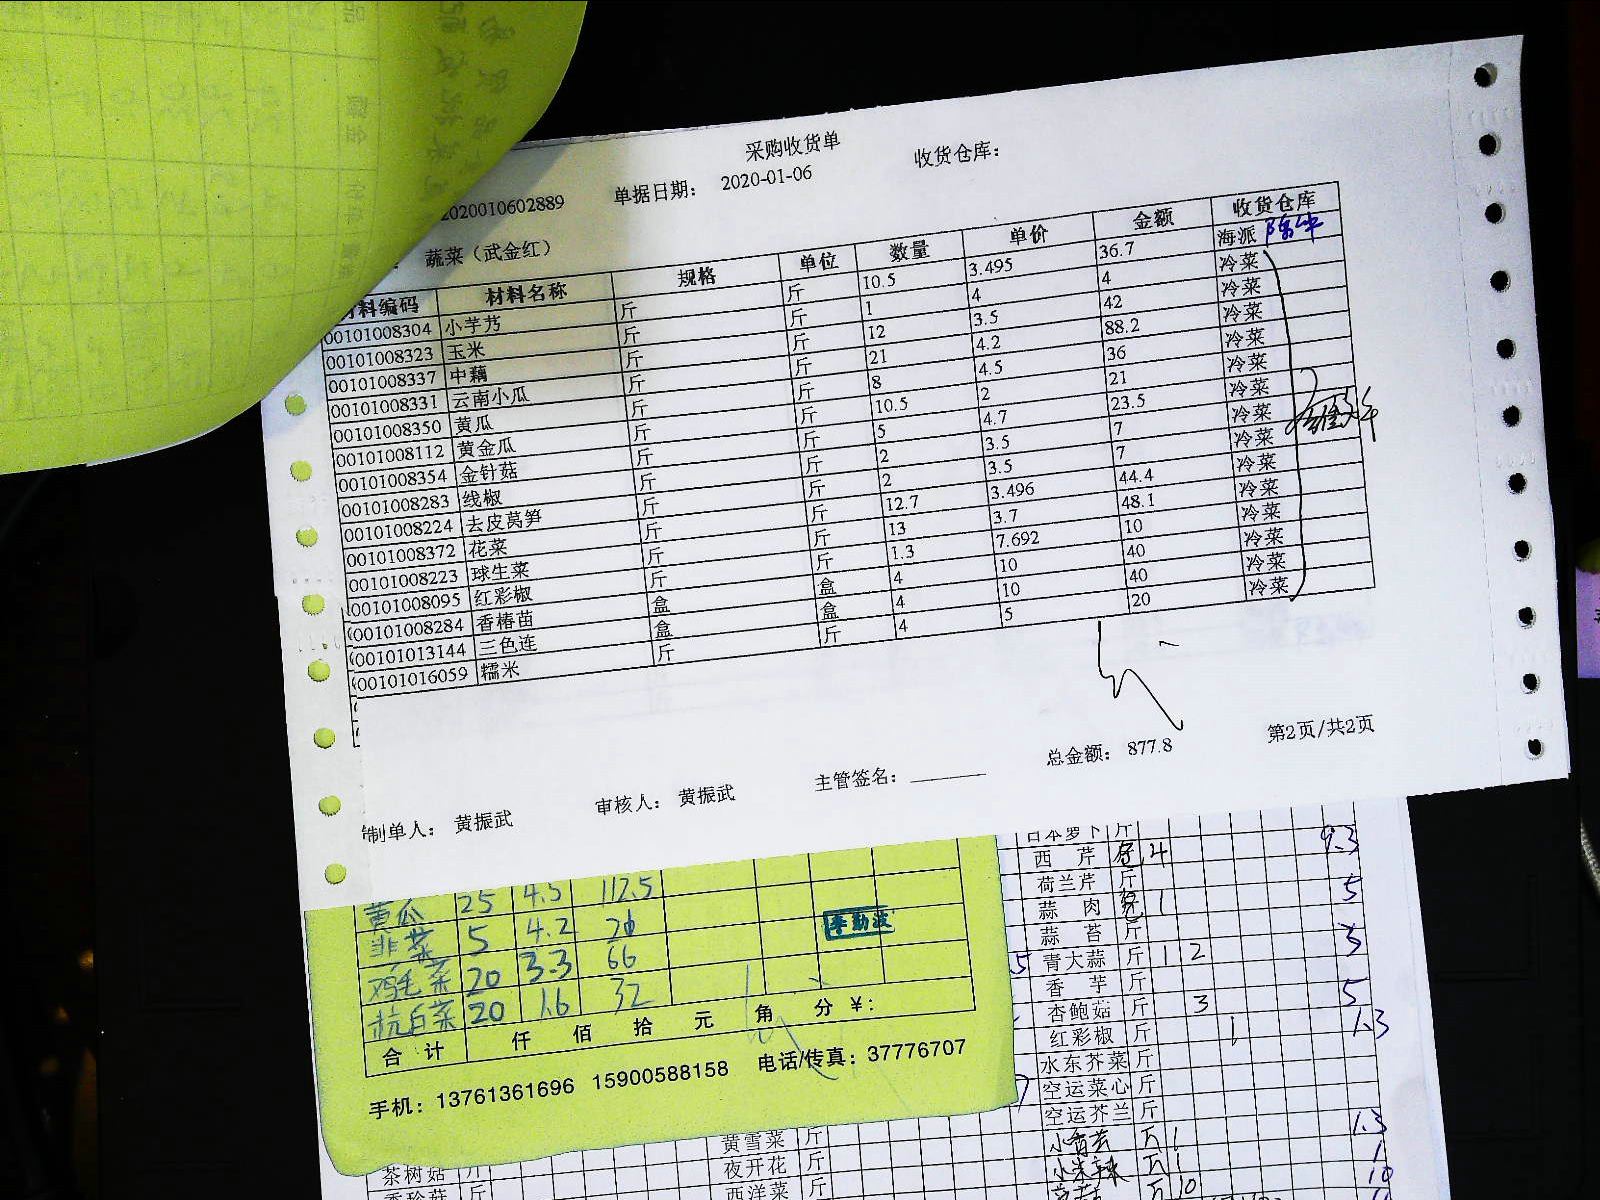 采购收货单
2020010602889 单据日期: 2020-01-06 收货仓库:
蔬菜（武金红）
材料编码 材料名称 规格 单位 数量 单价 金额 收货仓库
00101008304 小芋艿 斤 斤 10.5 3.495 36.7 海派
00101008323 玉米 斤 斤 1 4 4 冷菜
00101008337 中藕 斤 斤 12 3.5 42 冷菜
00101008331 云南小瓜 斤 斤 21 4.2 88.2 冷菜
00101008350 黄瓜 斤 斤 8 4.5 36 冷菜
00101008112 黄金瓜 斤 斤 10.5 2 21 冷菜
00101008354 金针菇 斤 斤 5 4.7 23.5 冷菜
00101008283 线椒 斤 斤 2 3.5 7 冷菜
00101008224 去皮莴笋 斤 斤 2 3.5 7 冷菜
00101008372 花菜 斤 斤 12.7 3.496 44.4 冷菜
00101008223 球生菜 斤 斤 13 3.7 48.1 冷菜
00101008095 红彩椒 斤 斤 1.3 7.692 10 冷菜
00101008284 香椿苗 盒 盒 4 10 40 冷菜
00101013144 三色连 盒 盒 4 10 40 冷菜
00101016059 糯米 斤 斤 4 5 20 冷菜
总金额: 877.8 第2页/共2页
制单人: 黄振武 审核人: 黄振武 主管签名:
黄瓜 25 4.5 112.5
韭菜 5 4.2 21
鸡毛菜 20 3.3 66
杭白菜 20 1.6 32
李勤波
合计 仟 佰 拾 元 角 分 ¥:
手机: 13761361696 15900588158 电话/传真: 37776707
日本萝卜 斤 9.3
西芹 4
荷兰芹 斤
蒜肉 1 5
蒜苔 斤
青大蒜 斤 1 2 3
香芋 斤
杏鲍菇 斤 3 5
红彩椒 斤 1 1.3
水东芥菜 斤
空运菜心 斤
空运芥兰 斤
1.3
1
10
黄雪菜 斤
夜开花 斤
西洋菜 斤
茶树菇 斤